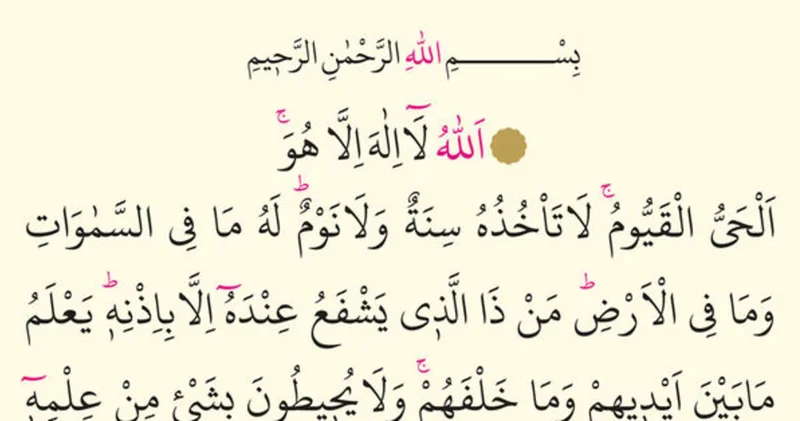 بِسْــــــــــمِ اللّٰهِ الرَّحْمٰنِ الرَّح۪يمِ
اَللّٰهُ لَٓا اِلٰهَ اِلَّا هُوَۚ
اَلْحَىُّ الْقَيُّومُۚ لَا تَاْخُذُهُ سِنَةٌ وَلَا نَوْمٌۜ لَهُ مَا فِى السَّمٰوَاتِ
وَمَا فِى الْاَرْضِۜ مَنْ ذَا الَّذ۪ى يَشْفَعُ عِنْدَهُٓ اِلَّا بِاِذْنِه۪ۜ يَعْلَمُ
مَابَيْنَ اَيْد۪يهِمْ وَمَا خَلْفَهُمْۚ وَلَا يُح۪يطُونَ بِشَىْئٍ مِنْ عِلْمِه۪ٓ